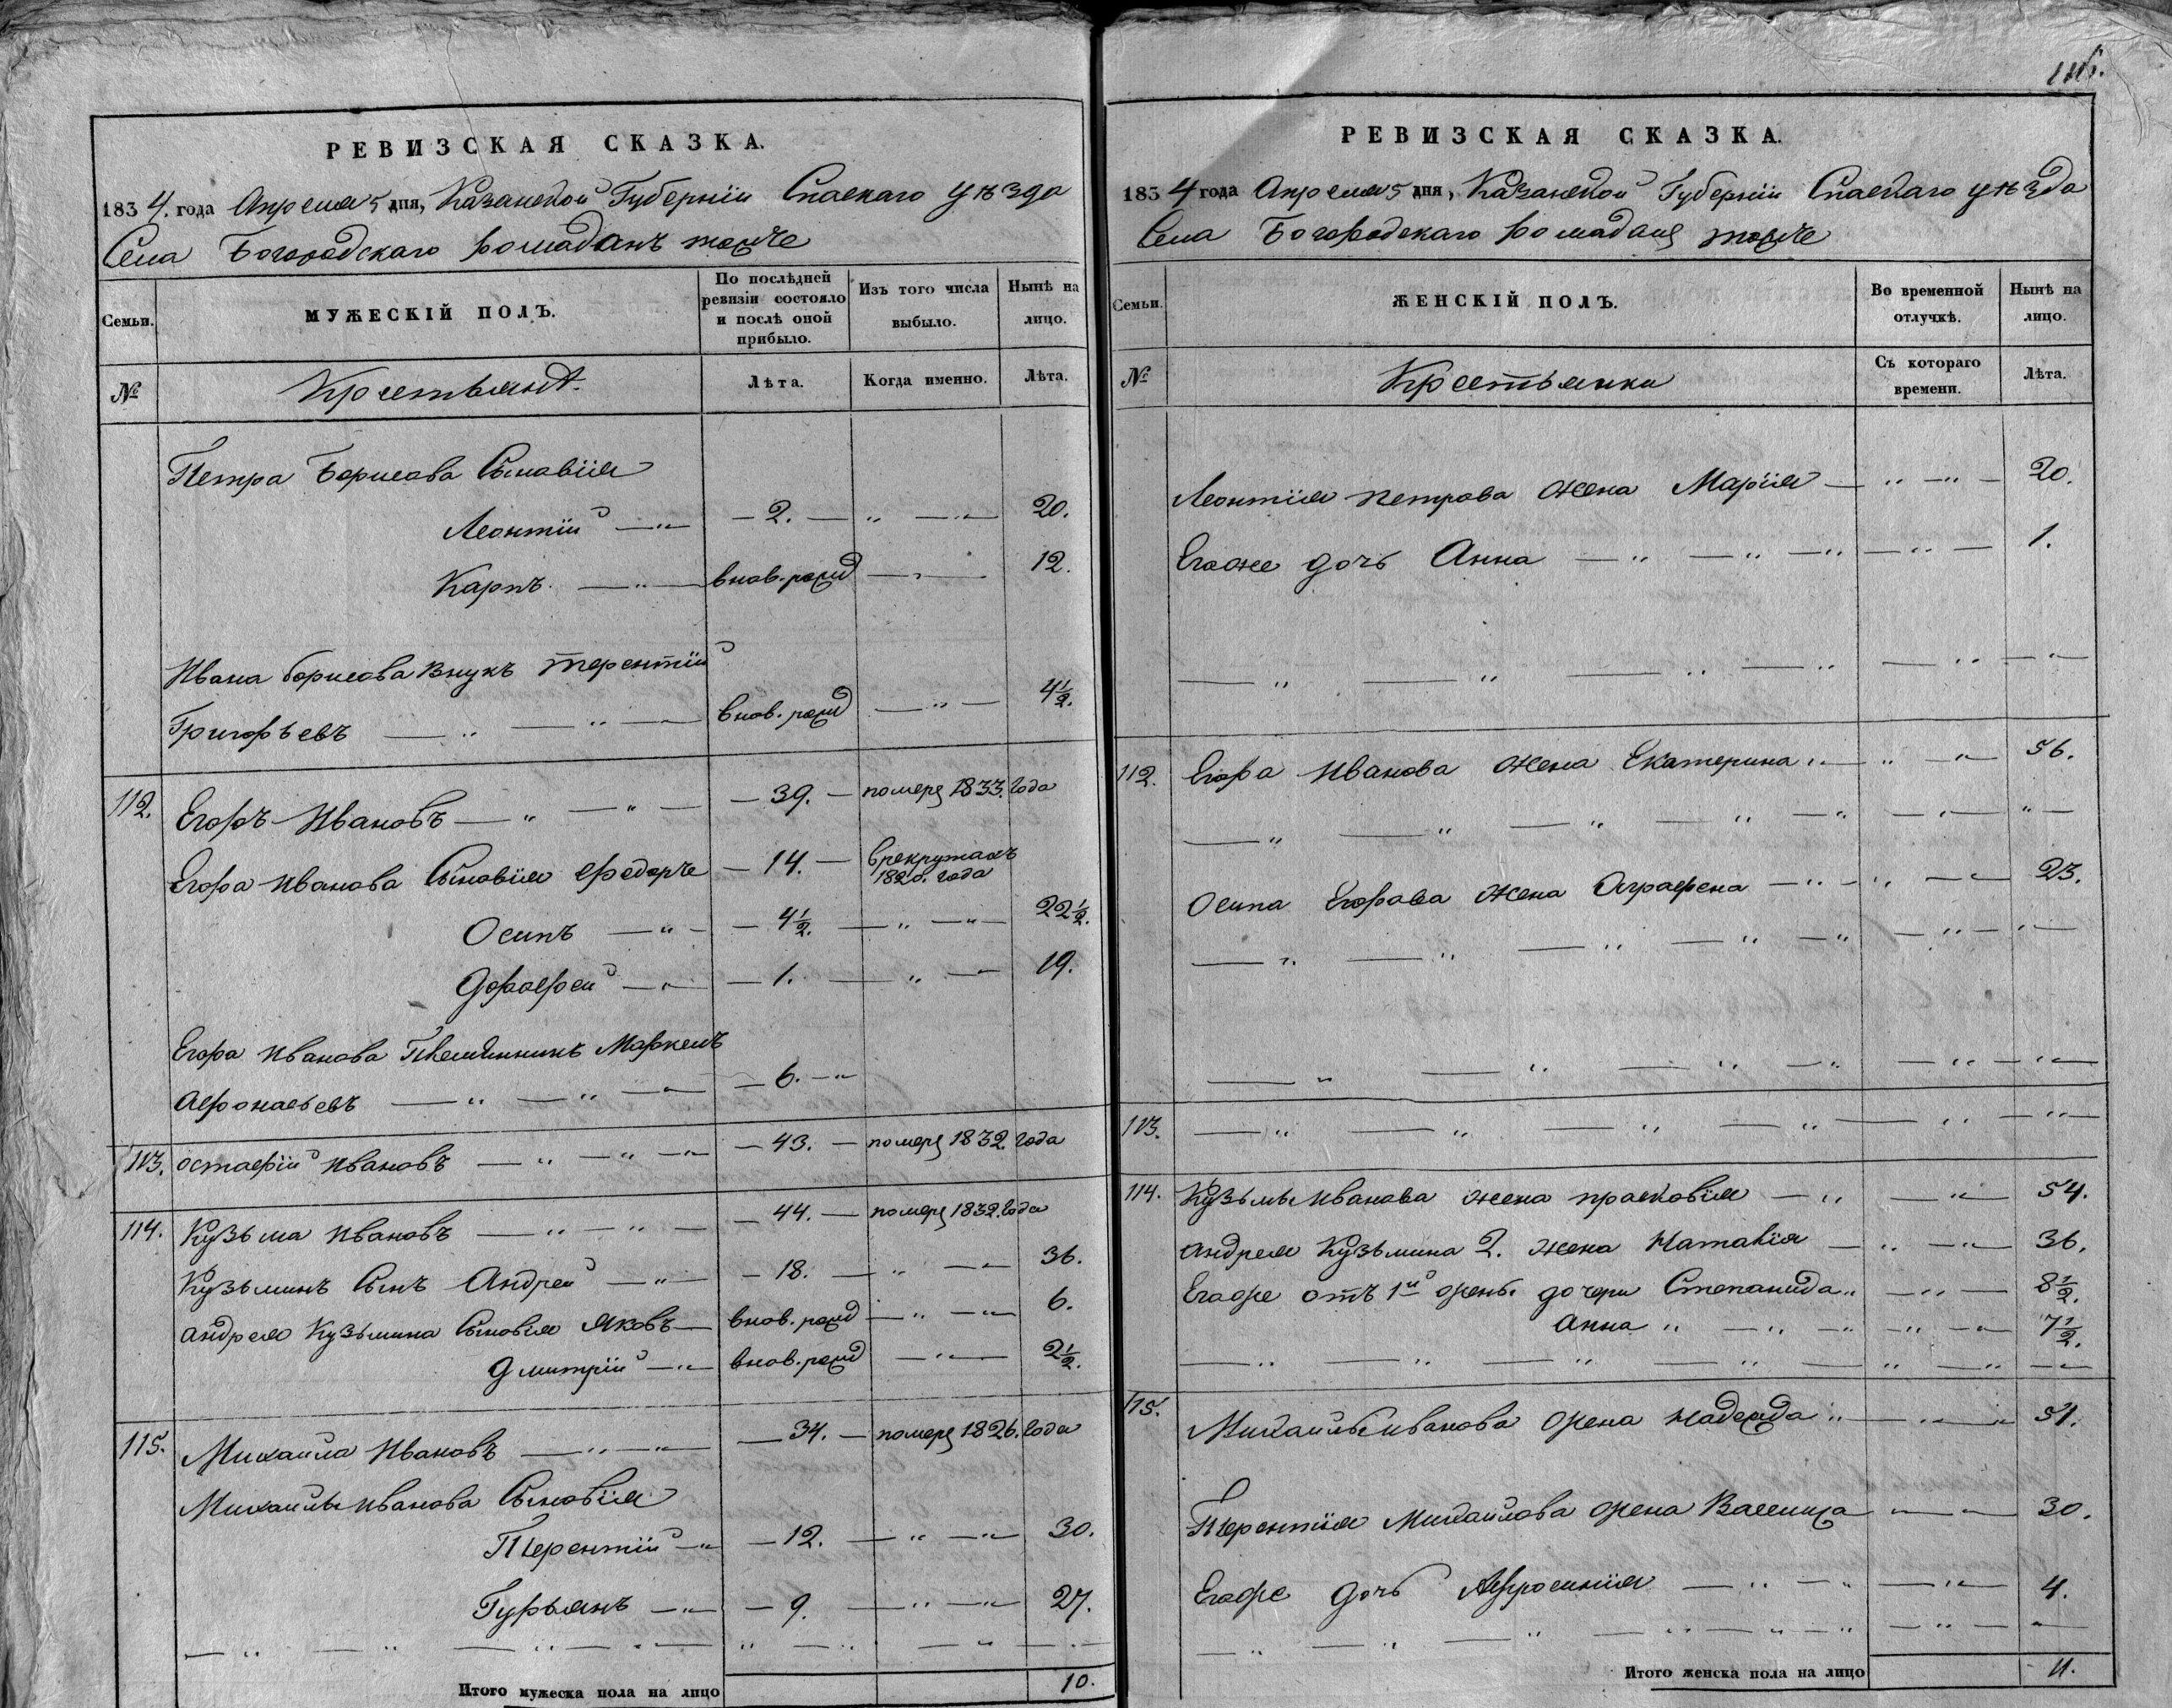 РЕВИЗСКАЯ СКАЗКА.
1834. года Апреля 5 дня, Казанской Губернiи Спаскаго уѣзда
Села Богородскаго Ромаданъ тожъ
Семьи.
МУЖЕСКIЙ ПОЛЪ.
По послѣдней ревизiи состояло и послѣ оной прибыло.
Изъ того числа выбыло.
Нынѣ на лицо.
№
Крестьянѣ
Лѣта.
Когда именно.
Лѣта.
Петра Борисова Сыновiя
Леонтiй — 2. — 20.
Карпъ — внов. рожд — 12.
Ивана борисова внукъ терентiй
Григорьевъ — внов. рожд — 4½.
112. Егоръ Ивановъ — 39. — померъ 1833. года
Егора иванова Сыновiя Федоръ — 14. — в рекрутахъ 1820. года
Осипъ — 4½. — 22½.
Дорофей — 1. — 19.
Егора иванова Племянникъ Маркелъ
Афонасьевъ — 6. —
113. остафiй ивановъ — 43. — померъ 1832. года
114. Кузьма ивановъ — 44. — померъ 1832. года
Кузьминъ Сынъ Андрей — 18. — 36.
андрея Кузьмина Сыновiя Яковъ — внов. рожд — 6.
Дмитрiй — внов. рожд — 2½.
115. Михаила Ивановъ — 34. — померъ 1826. года
Михаилы иванова Сыновiя
Терентiй — 12. — 30.
Гурьянъ — 9. — 27.
Итого мужеска пола на лицо 10.
РЕВИЗСКАЯ СКАЗКА.
1834 года Апреля 5 дня, Казанской Губернiи Спаскаго уѣзда
Села Богородскаго Ромаданъ тожъ
Семьи.
ЖЕНСКIЙ ПОЛЪ.
Во временной отлучкѣ.
Нынѣ на лицо.
№
Крестьянки
Съ котораго времени.
Лѣта.
Леонтiя петрова жена Марiя — 20.
Егоже дочь Анна — 1.
112. Егора Иванова жена Екатерина — 56.
Осипа Егорова жена Аграфена — 23.
113.
114. Кузьмы иванова жена прасковiя — 54.
андрея Кузьмина 2. жена Наталiя — 36.
Егоже отъ 1й жены дочери Степанида — 8½.
Анна — 7½.
115. Михаилы иванова жена надежда — 51.
Терентiя Михаилова жена Василиса — 30.
Егоже дочь Афросинiя — 4.
Итого женска пола на лицо 11.